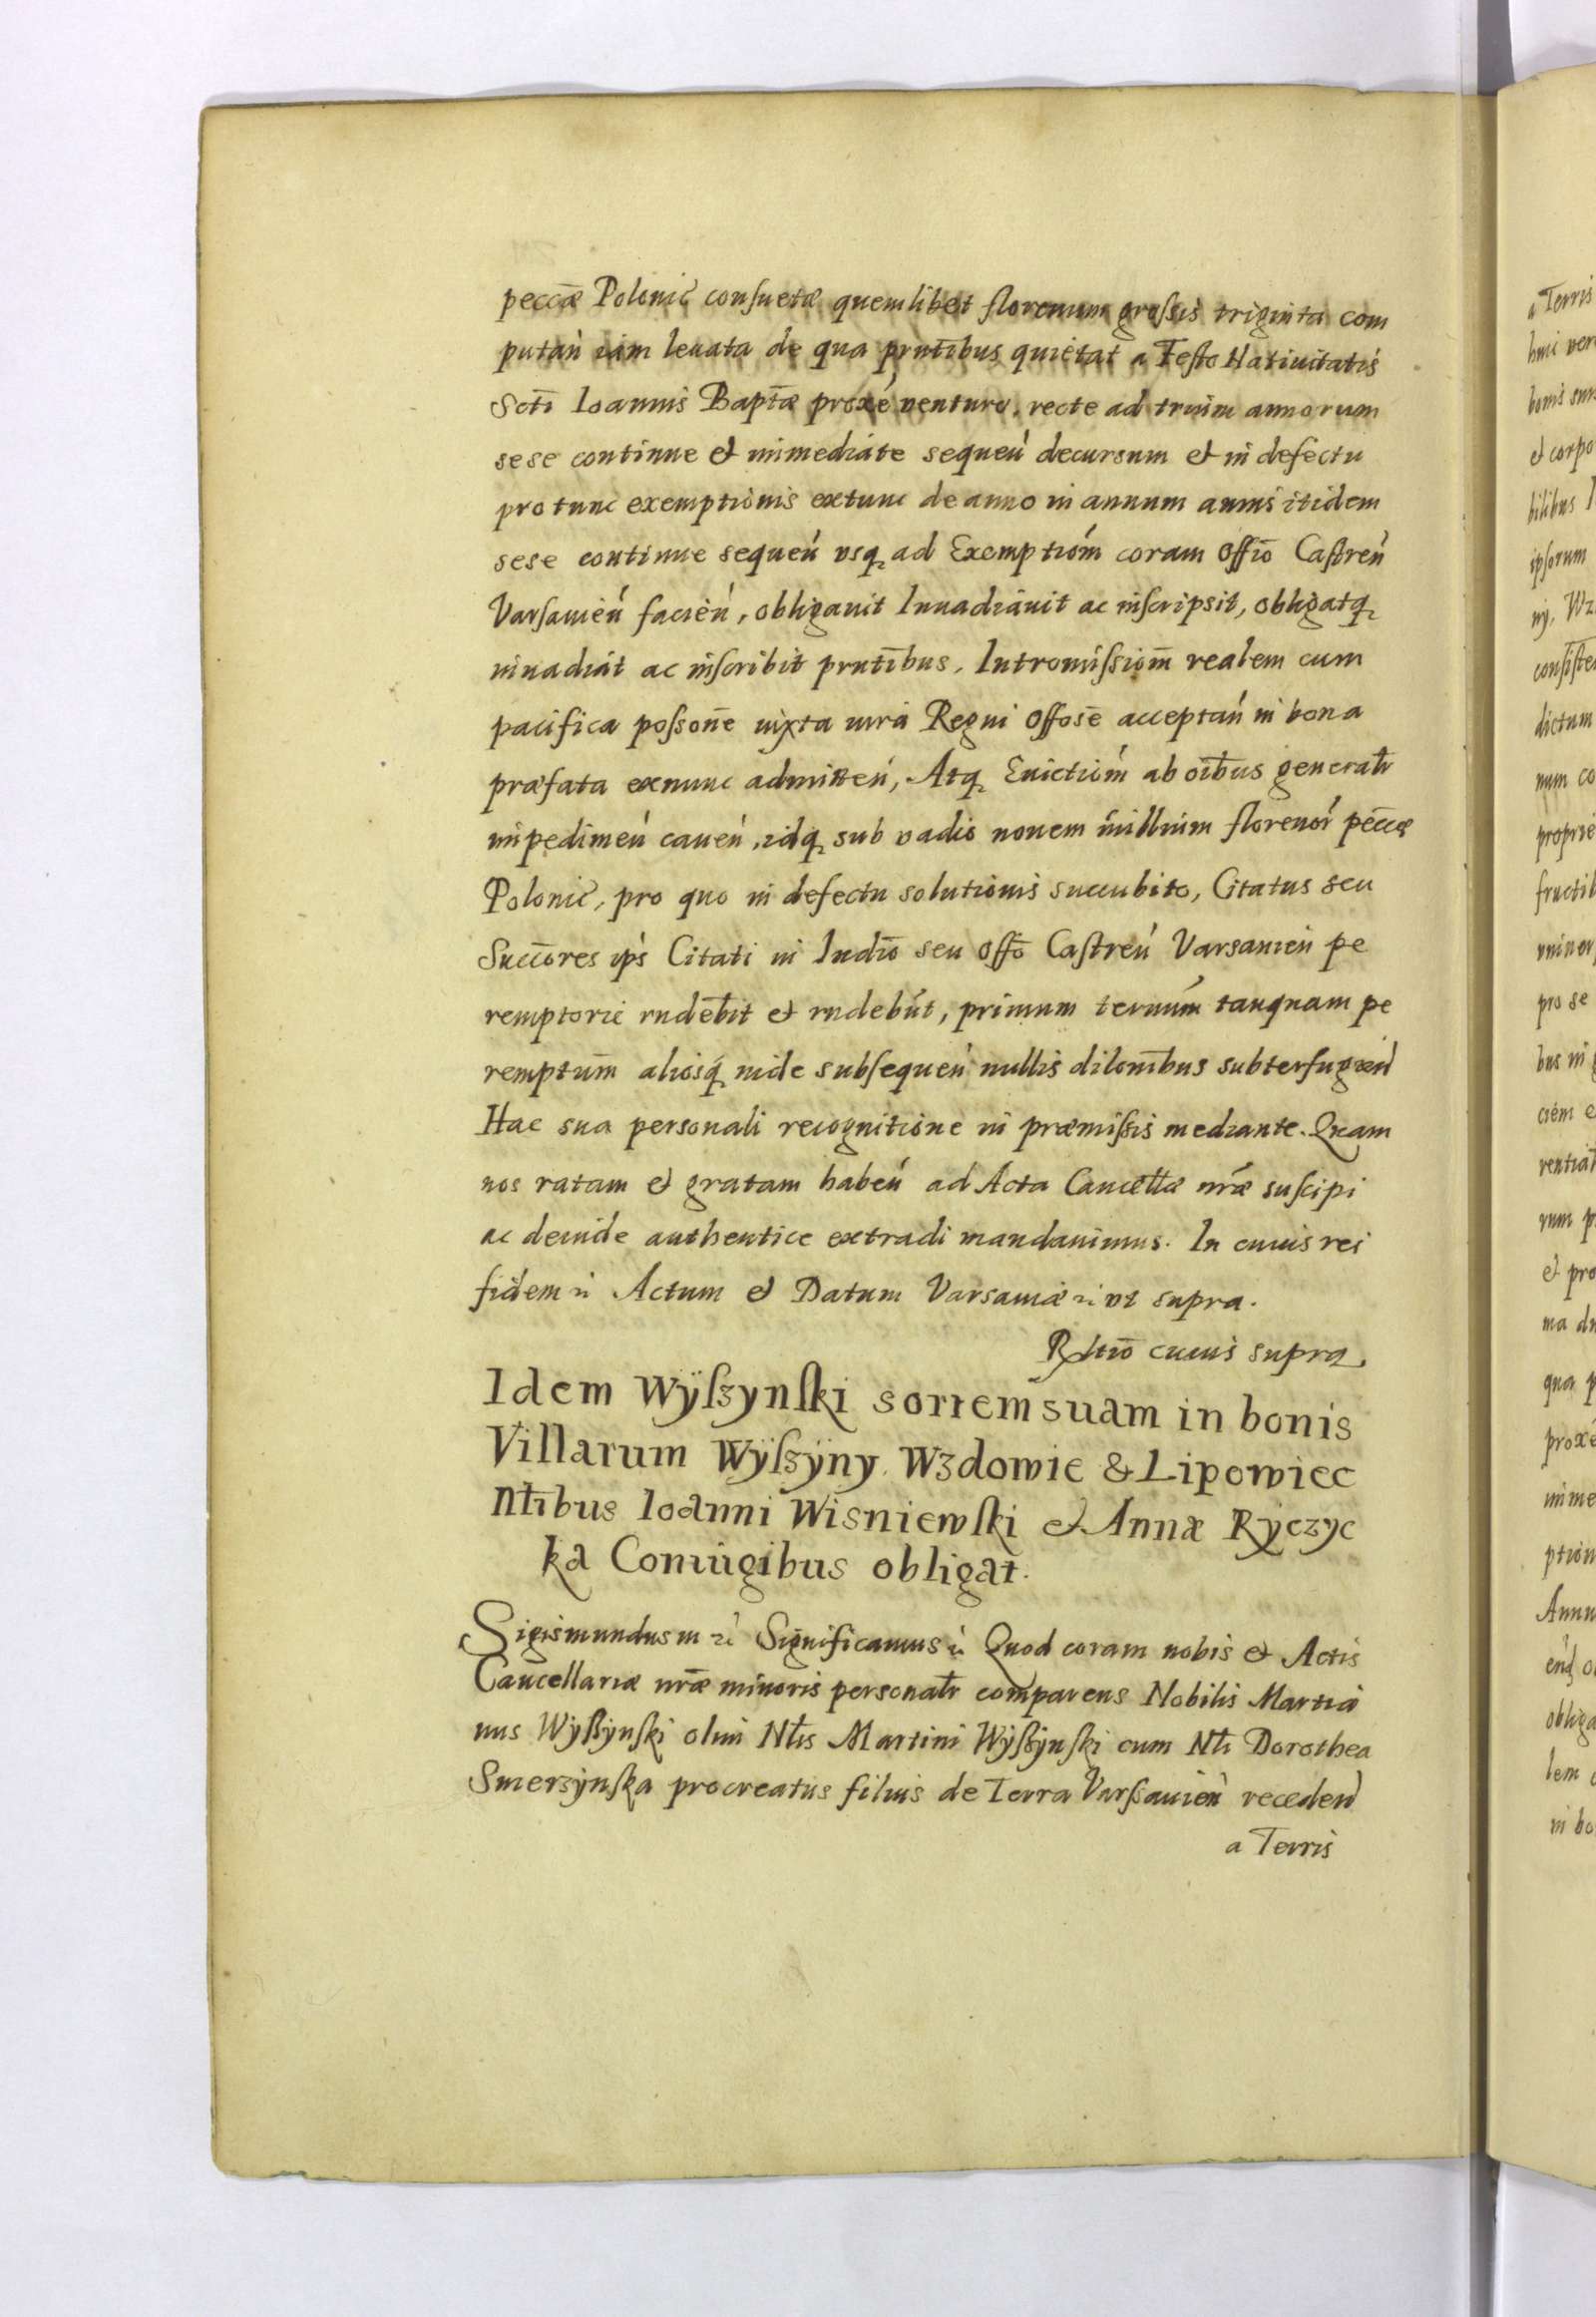 peccāe Polonic̄ consuetæ quemlibet florenum grossis triginta com
putań iam leuata de qua pn̄tibus quietat a Festo Natiuitatis
Scti Ioannis Bapt̄æ proxé venturo, recte ad trium annorum
sese continue & immediate sequeń decursum et in defectu
pro tunc exemptionis extunc de anno in annum annis itidem
sese continue sequeń vsq, ad Exemptióm coram Offīo Castreń
Varsauień facień, obligauit Inuadiauit ac inscripsit, obligatq,
inuadiat ac inscribit prntībus, Intromissiom̄ realem cum
pacifica possonē iuxta iura Regni Offosē acceptań in bona
præfata exnunc admitteń, Atq, Euictióm ab oībus generalr̄
impedimeń caueń, idq, sub vadio nouem millium florenoŕ pēccæ
Polonic̄, pro quo in defectu solutionis succubito, Citatus seu
Succ̄ores ip̄s Citati in Iudīo seu Offō Castreń Varsauień pe
remptorie rn̄debit et rn̄debūt, primum termúm tanquam pe
remptum̄ aliosq́, inde subsequeń nullis dilonībus subterfugień
Hac sua personali recognitione in præmissis mediante. Quam
nos ratam et gratam habeń ad Acta Cancellæ nrǣ suscipi
ac deinde authentice extradi mandauimus. In cuius rei
fidem ꝛc Actum et Datum Varsauiæ ꝛc vt supra.
Rltīo cuius supra.
Idem Wÿszynski sortem suam in bonis
Villarum Wÿszÿny, Wzdowie & Lipowiec
Ntībus Ioanni Wisniewski et Annæ Ryczyc
ka Coniugibus obligat.
Sigismundus III ꝛc Significamus ꝛc Quod coram nobis et Actis
Cancellariæ nrǣ minoris personalr̄ comparens Nobilis Martia
nus Wyszynski olim Ntīs Martini Wyszynski cum Ntī Dorothea
Smerzynska procreatus filius de Terra Varsauień receden̄
a Terris